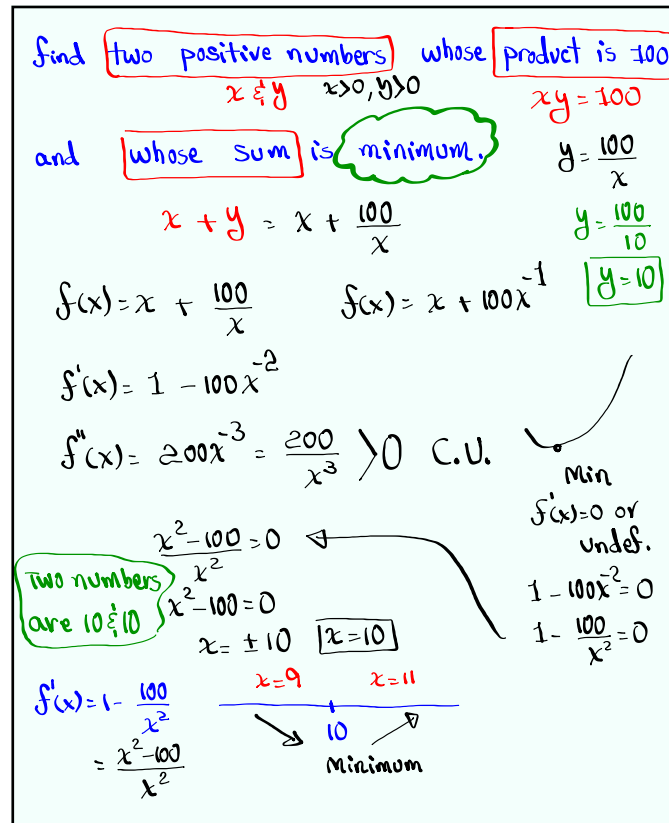 find two positive numbers whose product is 100
x & y x>0, y>0 xy = 100
and whose sum is minimum.
y = 100/x
x + y = x + 100/x
y = 100/10
y = 10
f(x) = x + 100/x f(x) = x + 100x^-1
f'(x) = 1 - 100x^-2
f"(x) = 200x^-3 = 200/x^3 >0 C.U.
Min
f'(x)=0 or
undef.
1 - 100x^-2 = 0
1 - 100/x^2 = 0
x^2-100/x^2 = 0
x^2-100 = 0
x = ±10 x=10
Two numbers
are 10 & 10
f'(x) = 1 - 100/x^2
= x^2-100/x^2
x=9 x=11
10
Minimum